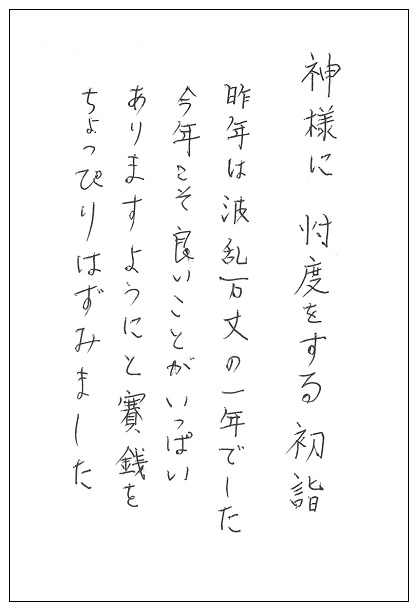 神様に 忖度をする 初詣
昨年は波乱万丈の一年でした
今年こそ良いことがいっぱい
ありますようにと賽銭を
ちょっぴりはずみました